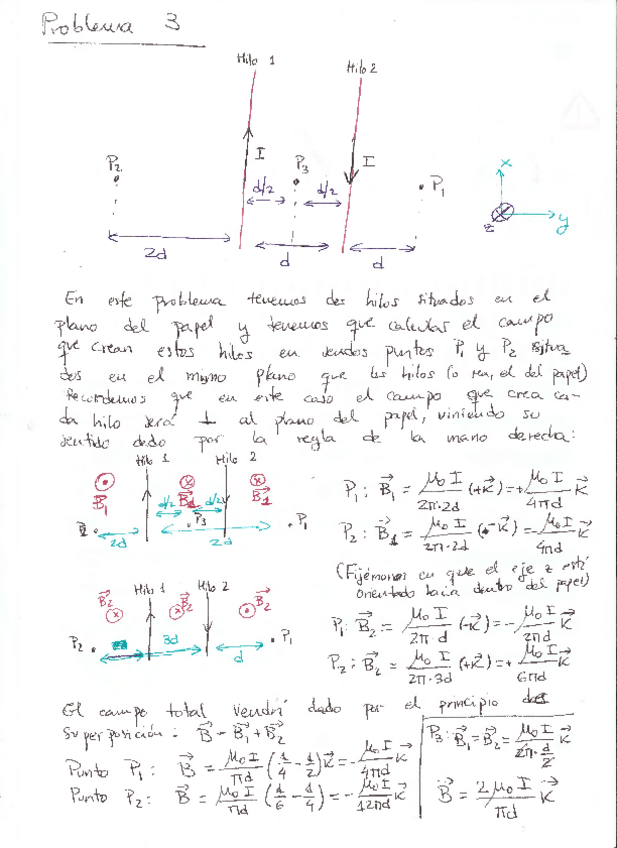 Problema 3
Hilo 1
Hilo 2
I
I
P₂
P₃
P₁
d/2
d/2
2d
d
d
x
y
z
En este problema tenemos dos hilos situados en el
plano del papel y tenemos que calcular el campo
que crean estos hilos en sendos puntos P₁ y P₂ situa
dos en el mismo plano que los hilos (o sea, el del papel)
Recordemos que en este caso el campo que crea ca-
da hilo será ⊥ al plano del papel, viniendo su
sentido dado por la regla de la mano derecha:
Hilo 1 Hilo 2
B⃗₁ B⃗₁ B⃗₁
d/2 d/2
P₃ P₁
2d 2d
P₁: B⃗₁ = μ₀I/(2π·2d) (+K⃗) = + μ₀I/(4πd) K⃗
P₂: B⃗₁ = μ₀I/(2π·2d) (-K⃗) = - μ₀I/(4πd) K⃗
(Fijémonos en que el eje z está
orientado hacia dentro del papel)
Hilo 1 Hilo 2
B⃗₂ B⃗₂ B⃗₂
P₂ 3d d P₁
P₁: B⃗₂ = μ₀I/(2π·d) (-K⃗) = - μ₀I/(2πd) K⃗
P₂: B⃗₂ = μ₀I/(2π·3d) (+K⃗) = + μ₀I/(6πd) K⃗
El campo total vendrá dado por el principio de
superposición: B⃗ = B⃗₁ + B⃗₂
Punto P₁: B⃗ = μ₀I/(πd) (1/4 - 1/2) K⃗ = - μ₀I/(4πd) K⃗
Punto P₂: B⃗ = μ₀I/(πd) (1/6 - 1/4) = - μ₀I/(12πd) K⃗
P₃: B⃗₁ = B⃗₂ = μ₀I/(2π·d/2) K⃗
B⃗ = 2μ₀I/(πd) K⃗